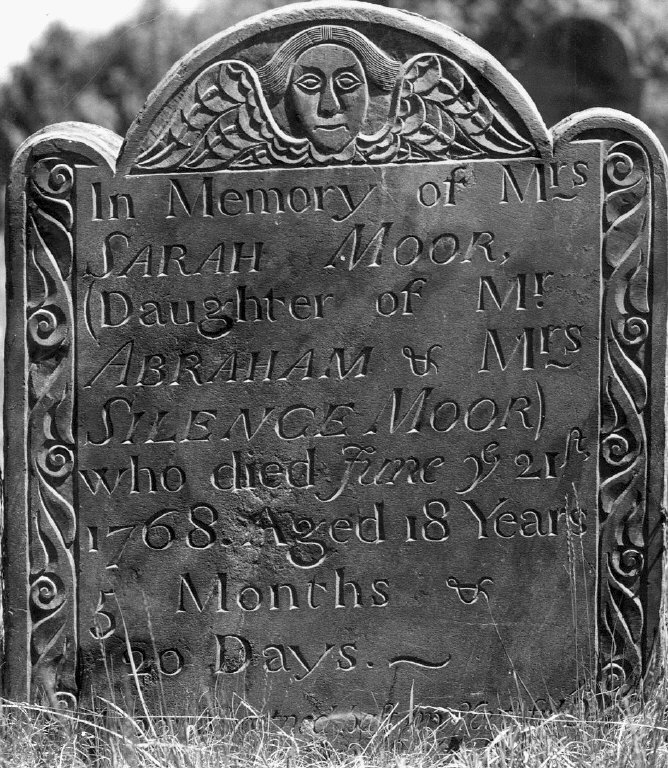 In Memory of Mrs
SARAH MOOR,
(Daughter of Mr.
ABRAHAM & Mrs
SILENCE MOOR)
who died June ye 21st,
1768. Aged 18 Years
5 Months &
20 Days. ~